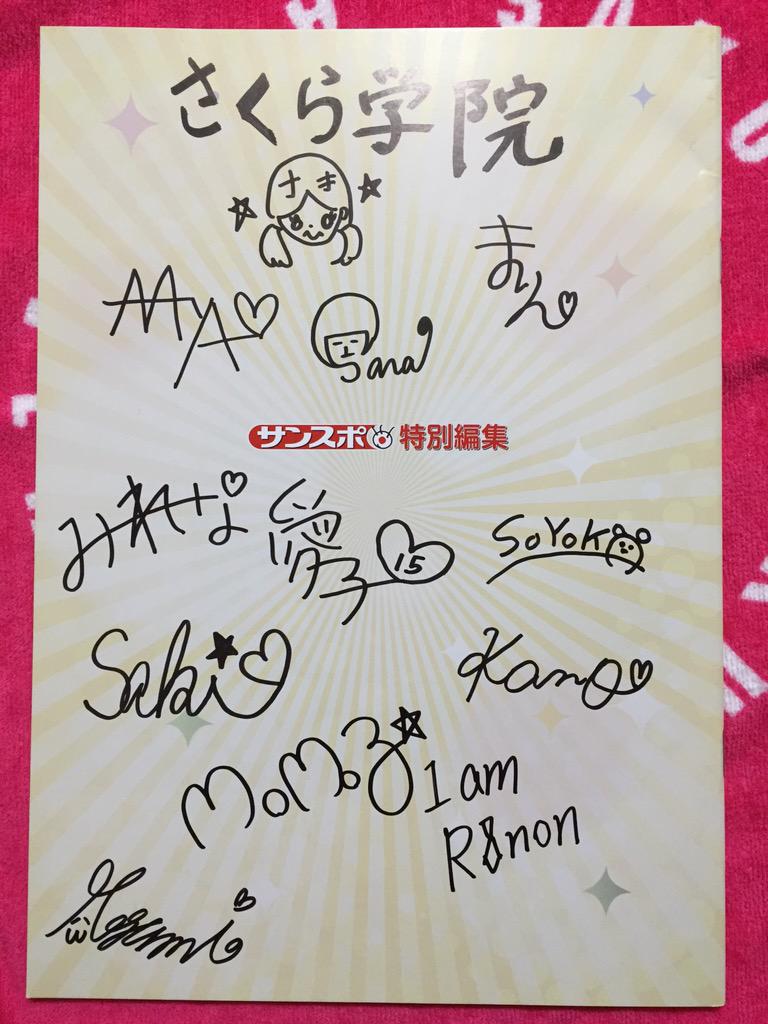 さくら学院
さき
まりん
MAA
Sana
サンスポ 特別編集
みれな
愛子
15
SOYOK
Saki
Kano
MoMoe
I am
Rinon
Megumi